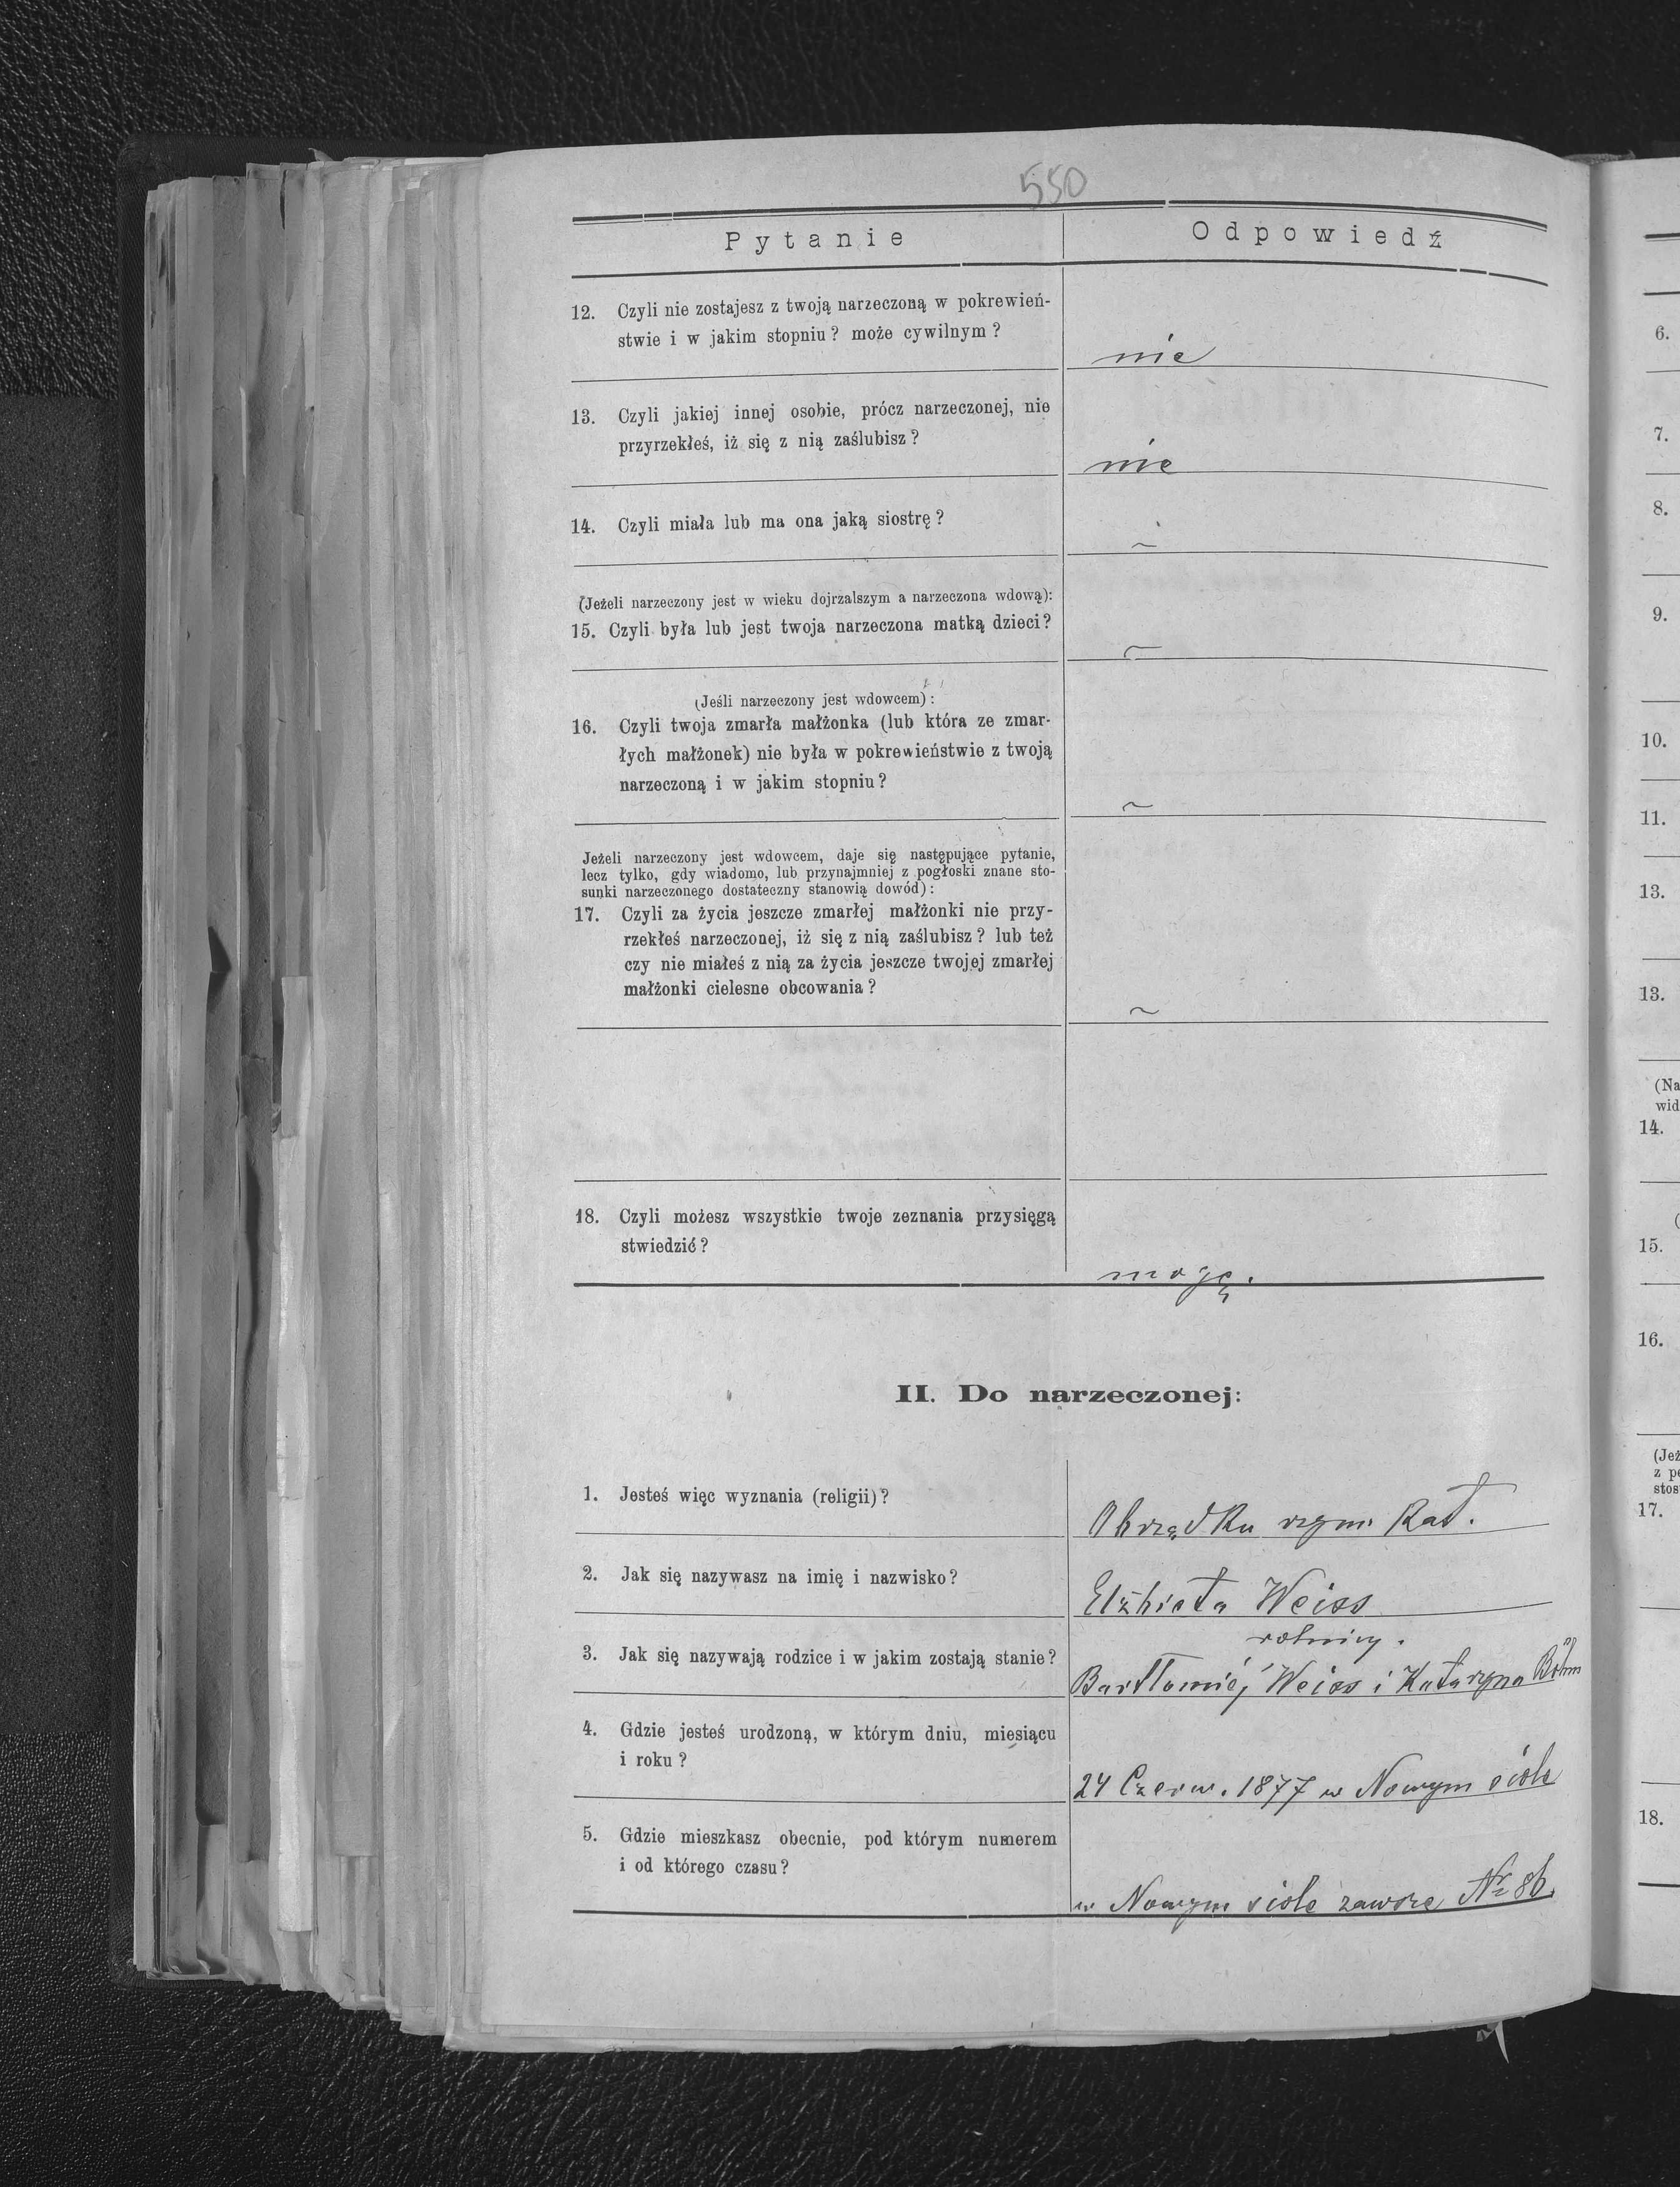 550
Pytanie Odpowiedź
12. Czyli nie zostajesz z twoją narzeczoną w pokrewień-
stwie i w jakim stopniu? może cywilnym?
nie
13. Czyli jakiej innej osobie, prócz narzeczonej, nie
przyrzekłeś, iż się z nią zaślubisz?
nie
14. Czyli miała lub ma ona jaką siostrę?
~
(Jeżeli narzeczony jest w wieku dojrzalszym a narzeczona wdową):
15. Czyli była lub jest twoja narzeczona matką dzieci?
~
(Jeśli narzeczony jest wdowcem):
16. Czyli twoja zmarła małżonka (lub która ze zmar-
łych małżonek) nie była w pokrewieństwie z twoją
narzeczoną i w jakim stopniu?
~
Jeżeli narzeczony jest wdowcem, daje się następujące pytanie,
lecz tylko, gdy wiadomo, lub przynajmniej z pogłoski znane sto-
sunki narzeczonego dostateczny stanowią dowód):
17. Czyli za życia jeszcze zmarłej małżonki nie przy-
rzekłeś narzeczonej, iż się z nią zaślubisz? lub też
czy nie miałeś z nią za życia jeszcze twojej zmarłej
małżonki cielesne obcowania?
~
18. Czyli możesz wszystkie twoje zeznania przysięgą
stwiedzić?
mogę.
II. Do narzeczonej:
1. Jesteś więc wyznania (religii)?
Obrządku rzym. Kat.
2. Jak się nazywasz na imię i nazwisko?
Elżbieta Weiss
3. Jak się nazywają rodzice i w jakim zostają stanie?
rolnicy.
Bartłomiéj Weiss i Katarzyna Böhm
4. Gdzie jesteś urodzoną, w którym dniu, miesiącu
i roku?
24 Czerw. 1877 w Nowym siole
5. Gdzie mieszkasz obecnie, pod którym numerem
i od którego czasu?
w Nowym siole zawsze № 86.
6.
7.
8.
9.
10.
11.
13.
13.
(Na
wid
14.
(
15.
16.
(Jeż
z po
stos
17.
18.